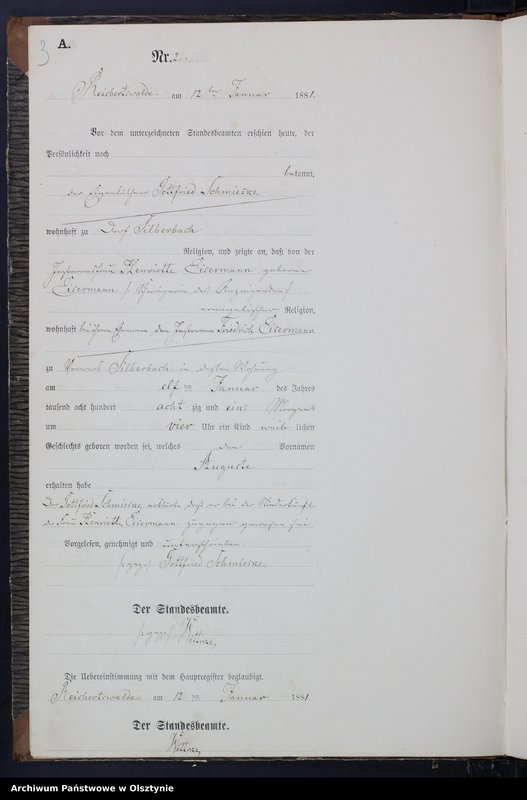 3
A.
Nr. 2.
Reichertswalde am 12ten Januar 1881.
Vor dem unterzeichneten Standesbeamten erschien heute, der
Persönlichkeit nach
bekannt,
der Eigenkäthner Gottfried Schmieske
wohnhaft zu Dorf Silberbach
Religion, und zeigte an, daß von der
Instmannsfrau Henriette Eisermann geborene
Eisermann / Schwägerin des Anzeigenden /
evangelischer Religion,
wohnhaft bei ihrem Ehemann dem Instmann Friedrich Eisermann
zu Vorwerk Silberbach in dessen Wohnung
am elf ten Januar des Jahres
tausend acht hundert acht zig und eins Morgens
um vier Uhr ein Kind weib lichen
Geschlechts geboren worden sei, welches den Vornamen
Auguste
erhalten habe
Der Gottfried Schmieske erklärte, daß er bei der Niederkunft
der Frau Henriette Eisermann zugegen gewesen sei
Vorgelesen, genehmigt und unterschrieben.
/:gez:/ Gottfried Schmieske
Der Standesbeamte.
/:gez:/
Die Uebereinstimmung mit dem Hauptregister beglaubigt.
Reichertswalde am 12 ten Januar 1881.
Der Standesbeamte.
Archiwum Państwowe w Olsztynie